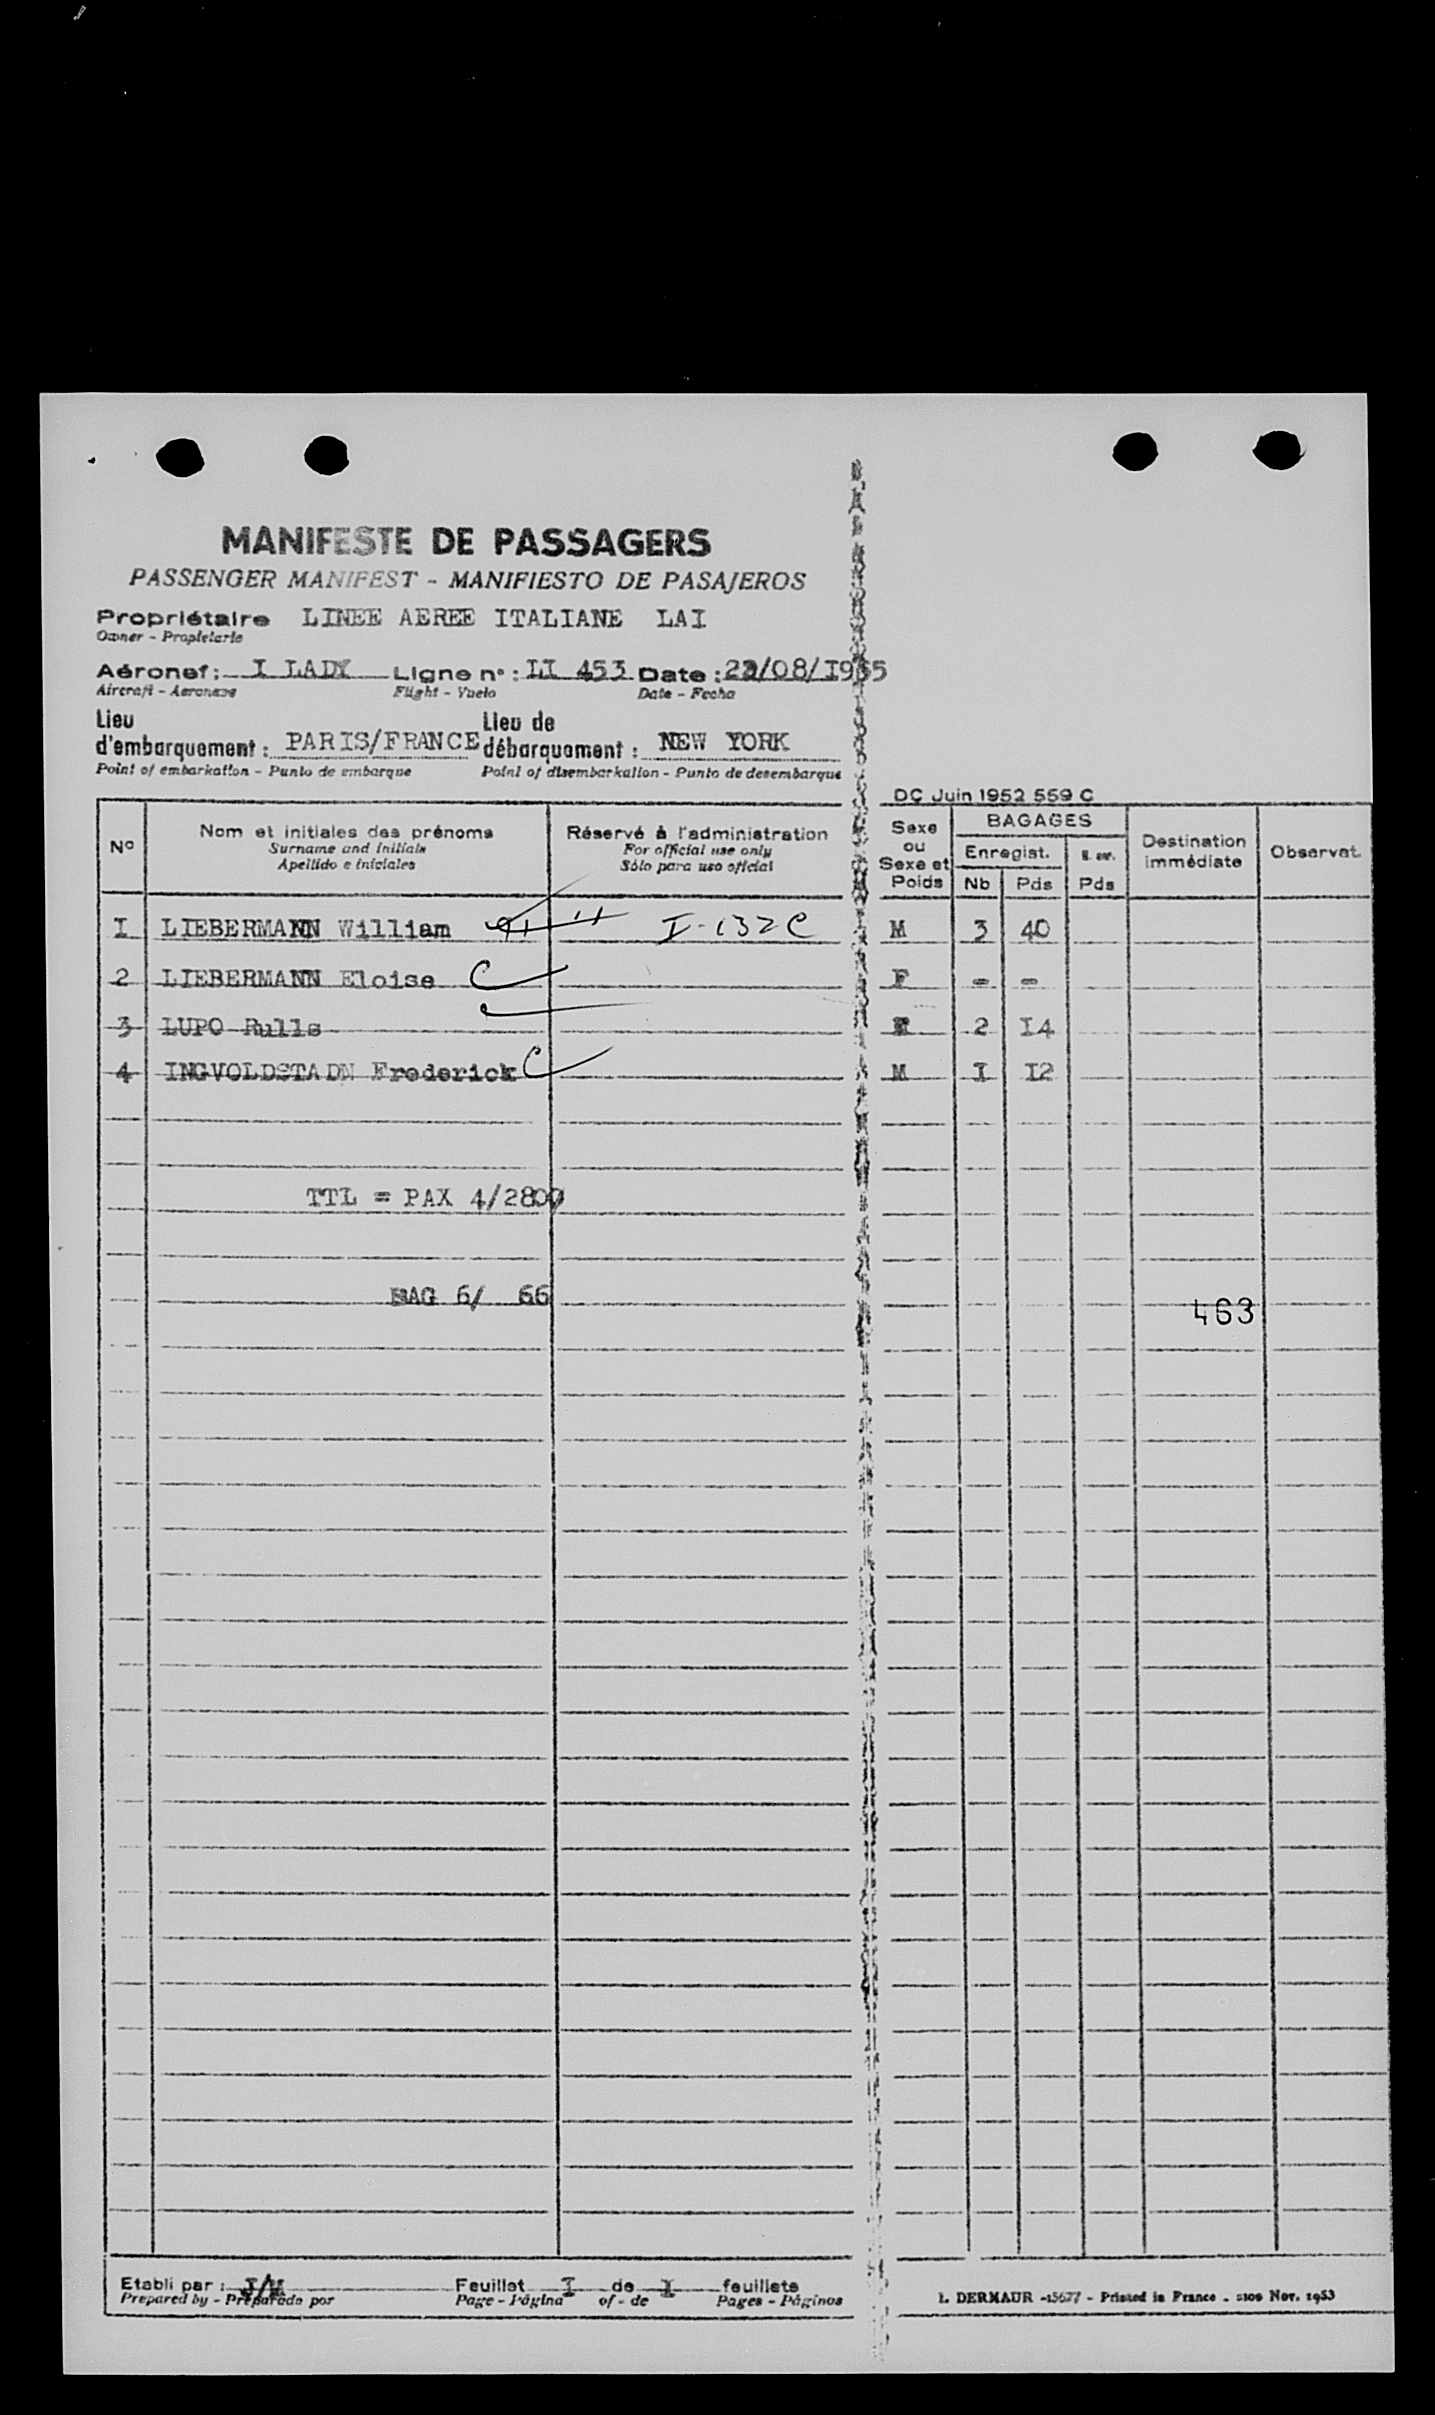 MANIFESTE DE PASSAGERS
PASSENGER MANIFEST - MANIFIESTO DE PASAJEROS
Propriétaire LINEE AEREE ITALIANE LAI
Owner - Propietario
Aéronef : I LADY Ligne n° : LI 453 Date : /08/I955
Aircraft - Aeronave Flight - Vuelo Date - Fecha
Lieu d'embarquement : PARIS/FRANCE Lieu de débarquement : NEW YORK
Point of embarkation - Punto de embarque Point of disembarkation - Punto de desembarque
DC Juin 1952 559 C
N° Nom et initiales des prénoms Réservé à l'administration Sexe ou Sexe et Poids BAGAGES Destination immédiate Observat.
Surname and initials For official use only Enregist.
Apellido e iniciales Sólo para uso oficial Nb Pds Pds
I LIEBERMANN William I-132C M 3 40
2 LIEBERMANN Eloise C F = =
3 LUPO Rulls 2 I4
4 INGVOLDSTADN Frederick C M I I2
TTL = PAX 4/2800
BAG 6/ 66
463
Etabli par : J/M Feuillet I de I feuillets
Prepared by - Preparado por Page - Página of - de Pages - Páginas
L. DERMAUR -15677 - Printed in France - Nov. 1953